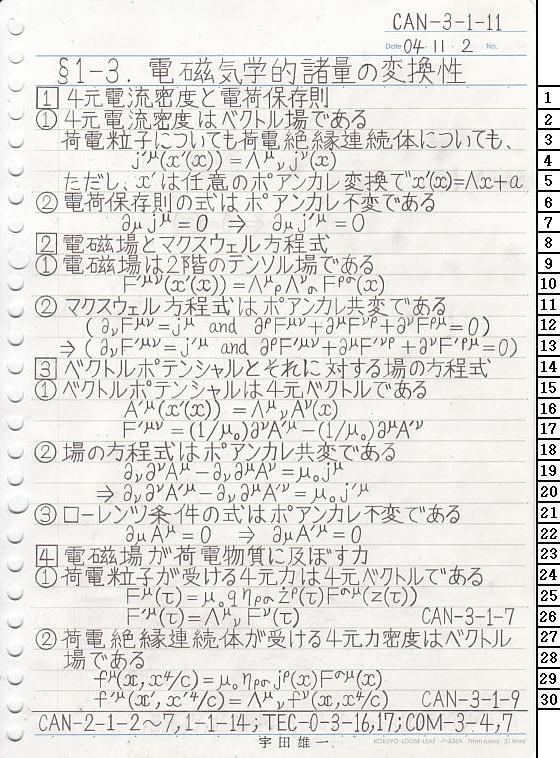 CAN-3-1-11
Date 04・11・2 No.
§1-3. 電磁気学的諸量の変換性
1 4元電流密度と電荷保存則
① 4元電流密度はベクトル場である
荷電粒子についても荷電絶縁連続体についても、
j′^μ(x′(x)) = Λ^μ_ν j^ν(x)
ただし、x′は任意のポアンカレ変換で x′(x)=Λx+a
② 電荷保存則の式はポアンカレ不変である
∂_μ j^μ = 0 ⇒ ∂_μ j′^μ = 0
2 電磁場とマクスウェル方程式
① 電磁場は2階のテンソル場である
F′^μν(x′(x)) = Λ^μ_ρ Λ^ν_σ F^ρσ(x)
② マクスウェル方程式はポアンカレ共変である
( ∂_ν F^μν = j^μ and ∂^ρ F^μν + ∂^μ F^νρ + ∂^ν F^ρμ = 0 )
⇒ ( ∂_ν F′^μν = j′^μ and ∂^ρ F′^μν + ∂^μ F′^νρ + ∂^ν F′^ρμ = 0 )
3 ベクトルポテンシャルとそれに対する場の方程式
① ベクトルポテンシャルは4元ベクトルである
A′^μ(x′(x)) = Λ^μ_ν A^ν(x)
F′^μν = (1/μ₀)∂^ν A′^μ − (1/μ₀)∂^μ A′^ν
② 場の方程式はポアンカレ共変である
∂_ν ∂^ν A^μ − ∂_ν ∂^μ A^ν = μ₀ j^μ
⇒ ∂_ν ∂^ν A′^μ − ∂_ν ∂^μ A′^ν = μ₀ j′^μ
③ ローレンツ条件の式はポアンカレ不変である
∂_μ A^μ = 0 ⇒ ∂_μ A′^μ = 0
4 電磁場が荷電物質に及ぼす力
① 荷電粒子が受ける4元力は4元ベクトルである
F^μ(τ) = μ₀ q η_ρσ ż^ρ(τ) F^σμ(z(τ))
F′^μ(τ) = Λ^μ_ν F^ν(τ) CAN-3-1-7
② 荷電絶縁連続体が受ける4元力密度はベクトル
場である
f^μ(x, x⁴/c) = μ₀ η_ρσ j^ρ(x) F^σμ(x)
f′^μ(x′, x′⁴/c) = Λ^μ_ν f^ν(x, x⁴/c) CAN-3-1-9
CAN-2-1-2〜7, 1-1-14; TEC-0-3-16,17; COM-3-4,7
宇田雄一
KOKUYO LOOSE-LEAF ノ-836A 7mm ruled 31 lines
1
2
3
4
5
6
7
8
9
10
11
12
13
14
15
16
17
18
19
20
21
22
23
24
25
26
27
28
29
30